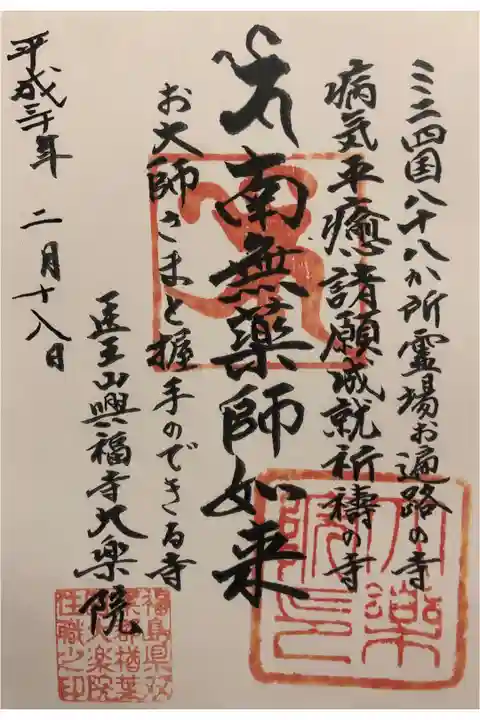 ミニ四国八十八か所霊場お遍路の寺
病気平癒諸願成就祈祷の寺
南無薬師如来
お大師さまと握手のできる寺
医王山興福寺大楽院
平成三十年 二月十八日
大楽院印
福島県双
葉郡楢葉
大楽院
住職之印